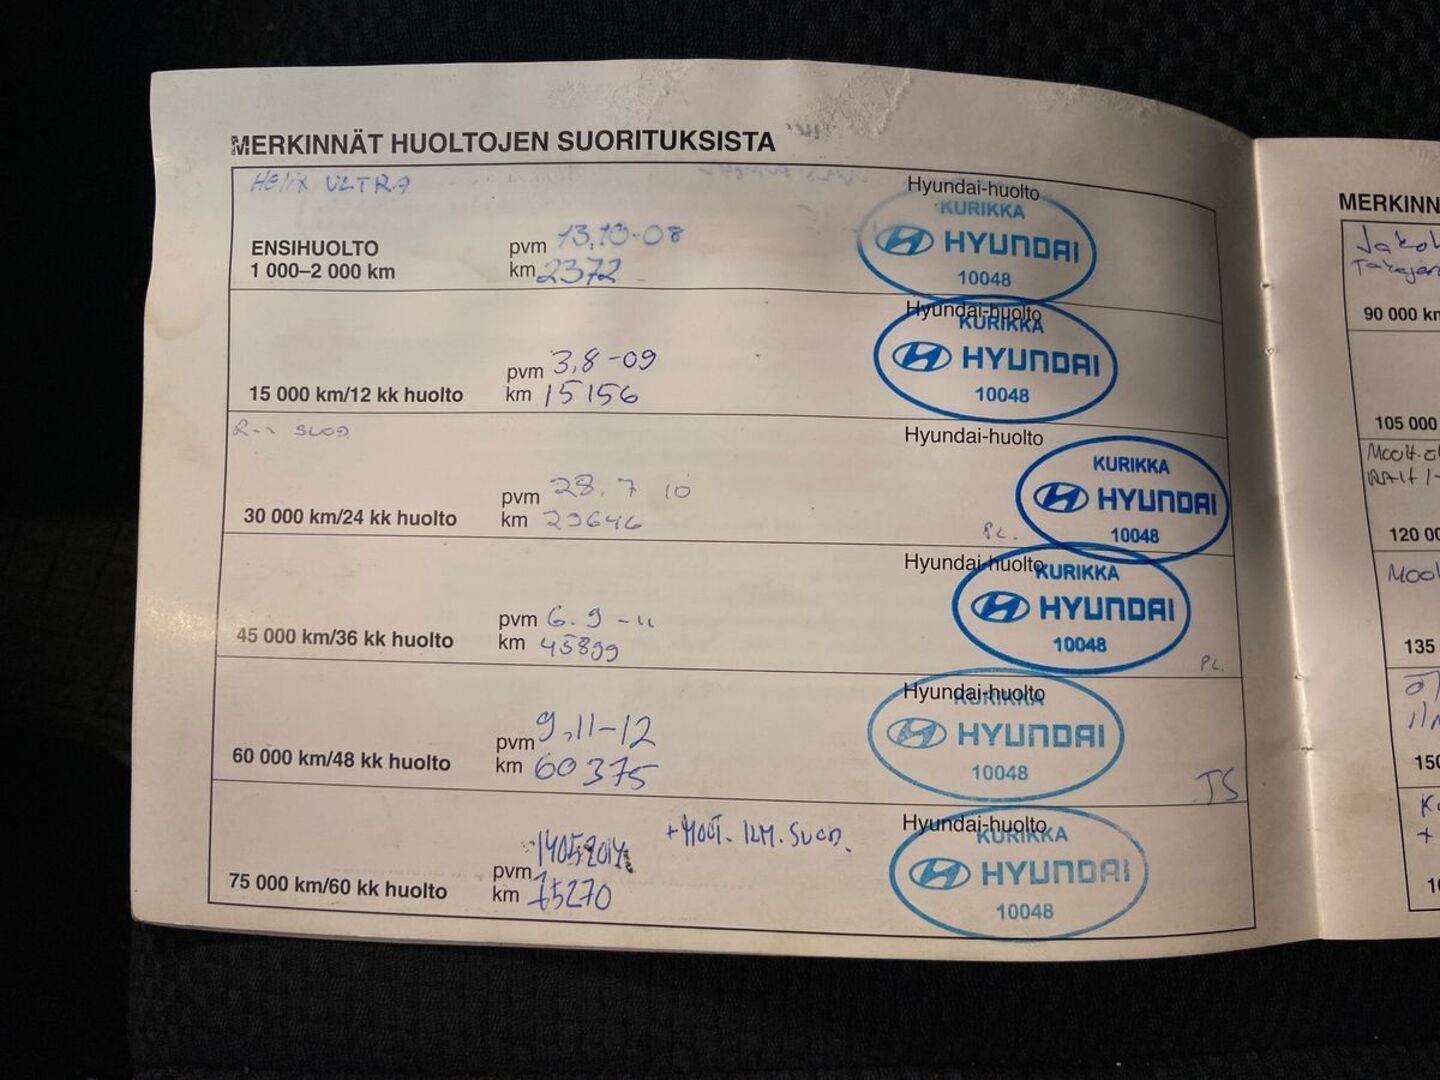 MERKINNÄT HUOLTOJEN SUORITUKSISTA
HELIX ULTRA
Hyundai-huolto
KURIKKA
HYUNDAI
10048
ENSIHUOLTO
1 000–2 000 km
pvm 13.10-08
km 2372
Hyundai-huolto
KURIKKA
HYUNDAI
10048
15 000 km/12 kk huolto
pvm 3,8-09
km 15156
SUOD.
Hyundai-huolto
KURIKKA
HYUNDAI
10048
30 000 km/24 kk huolto
pvm 28.7 10
km 29646
PL.
Hyundai-huolto
KURIKKA
HYUNDAI
10048
45 000 km/36 kk huolto
pvm 6.9-11
km 45899
PL.
Hyundai-huolto
KURIKKA
HYUNDAI
10048
60 000 km/48 kk huolto
pvm 9,11-12
km 60375
JS
Hyundai-huolto
KURIKKA
HYUNDAI
10048
75 000 km/60 kk huolto
pvm 14052014
km 75270
+MOOT. ILM. SUOD.
MERKINN
90 000 km
105 000
120 00
135
150